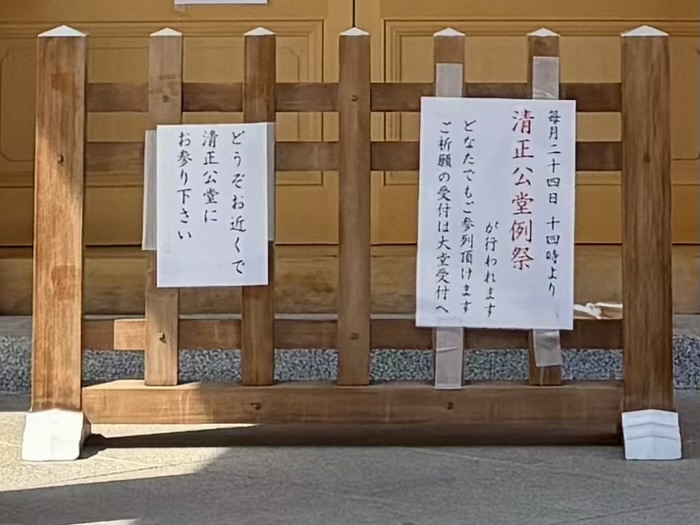 毎月二十四日 十四時より
清正公堂例祭
が行われます
どなたでもご参列頂けます
ご祈願の受付は大堂受付へ
どうぞお近くで
清正公堂に
お参り下さい